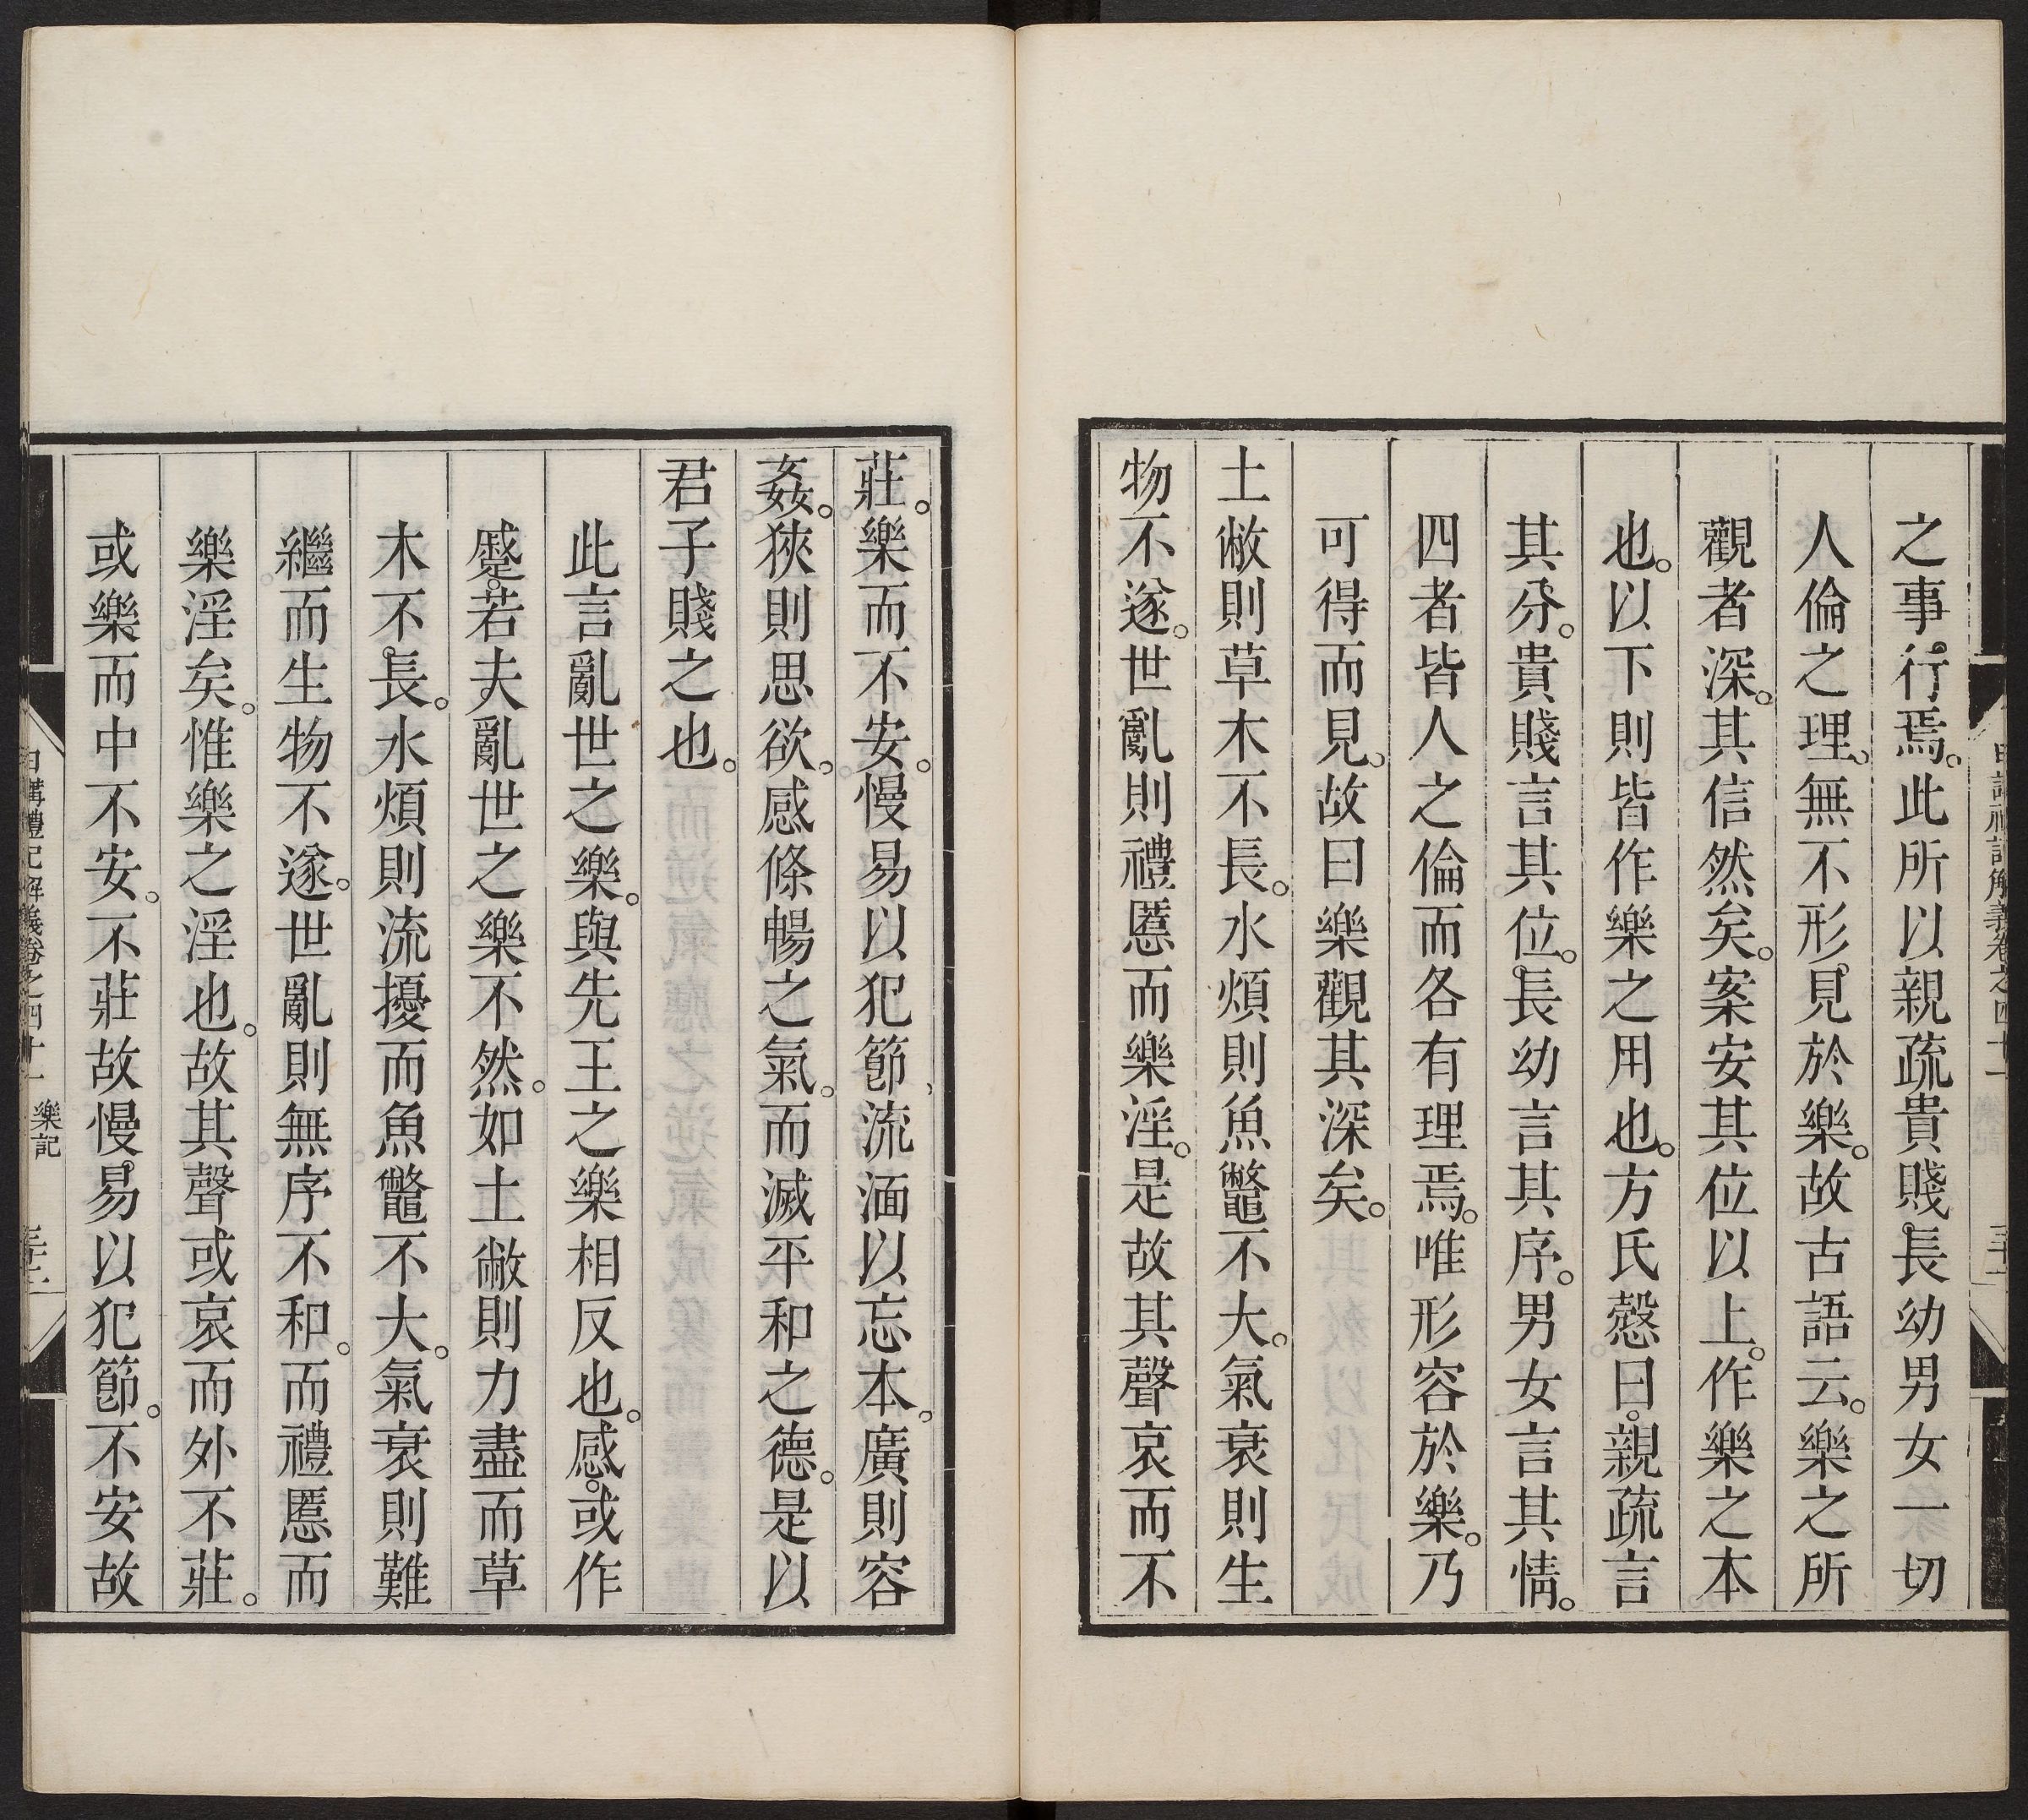 之事行焉。此所以親疏貴賤長幼男女一切
人倫之理。無不形見於樂。故古語云。樂之所
觀者深。其信然矣。案安其位以上。作樂之本
也。以下則皆作樂之用也。方氏慤曰。親疏言
其分。貴賤言其位。長幼言其序。男女言其情。
四者皆人之倫而各有理焉。唯形容於樂。乃
可得而見。故曰樂觀其深矣。
土敝則草木不長。水煩則魚鼈不大。氣衰則生
物不遂。世亂則禮慝而樂淫。是故其聲哀而不
莊。樂而不安。慢易以犯節、流湎以忘本。廣則容
姦。狹則思欲。感條暢之氣。而滅平和之德。是以
君子賤之也。
此言亂世之樂。與先王之樂相反也。感。或作
蹙。若夫亂世之樂不然。如土敝則力盡而草
木不長。水煩則流擾而魚鼈不大。氣衰則難
繼而生物不遂。世亂則無序不和。而禮慝而
樂淫矣。惟樂之淫也。故其聲或哀而外不莊。
或樂而中不安。不莊故慢易以犯節。不安故
日講禮記解義卷之四十一 樂記